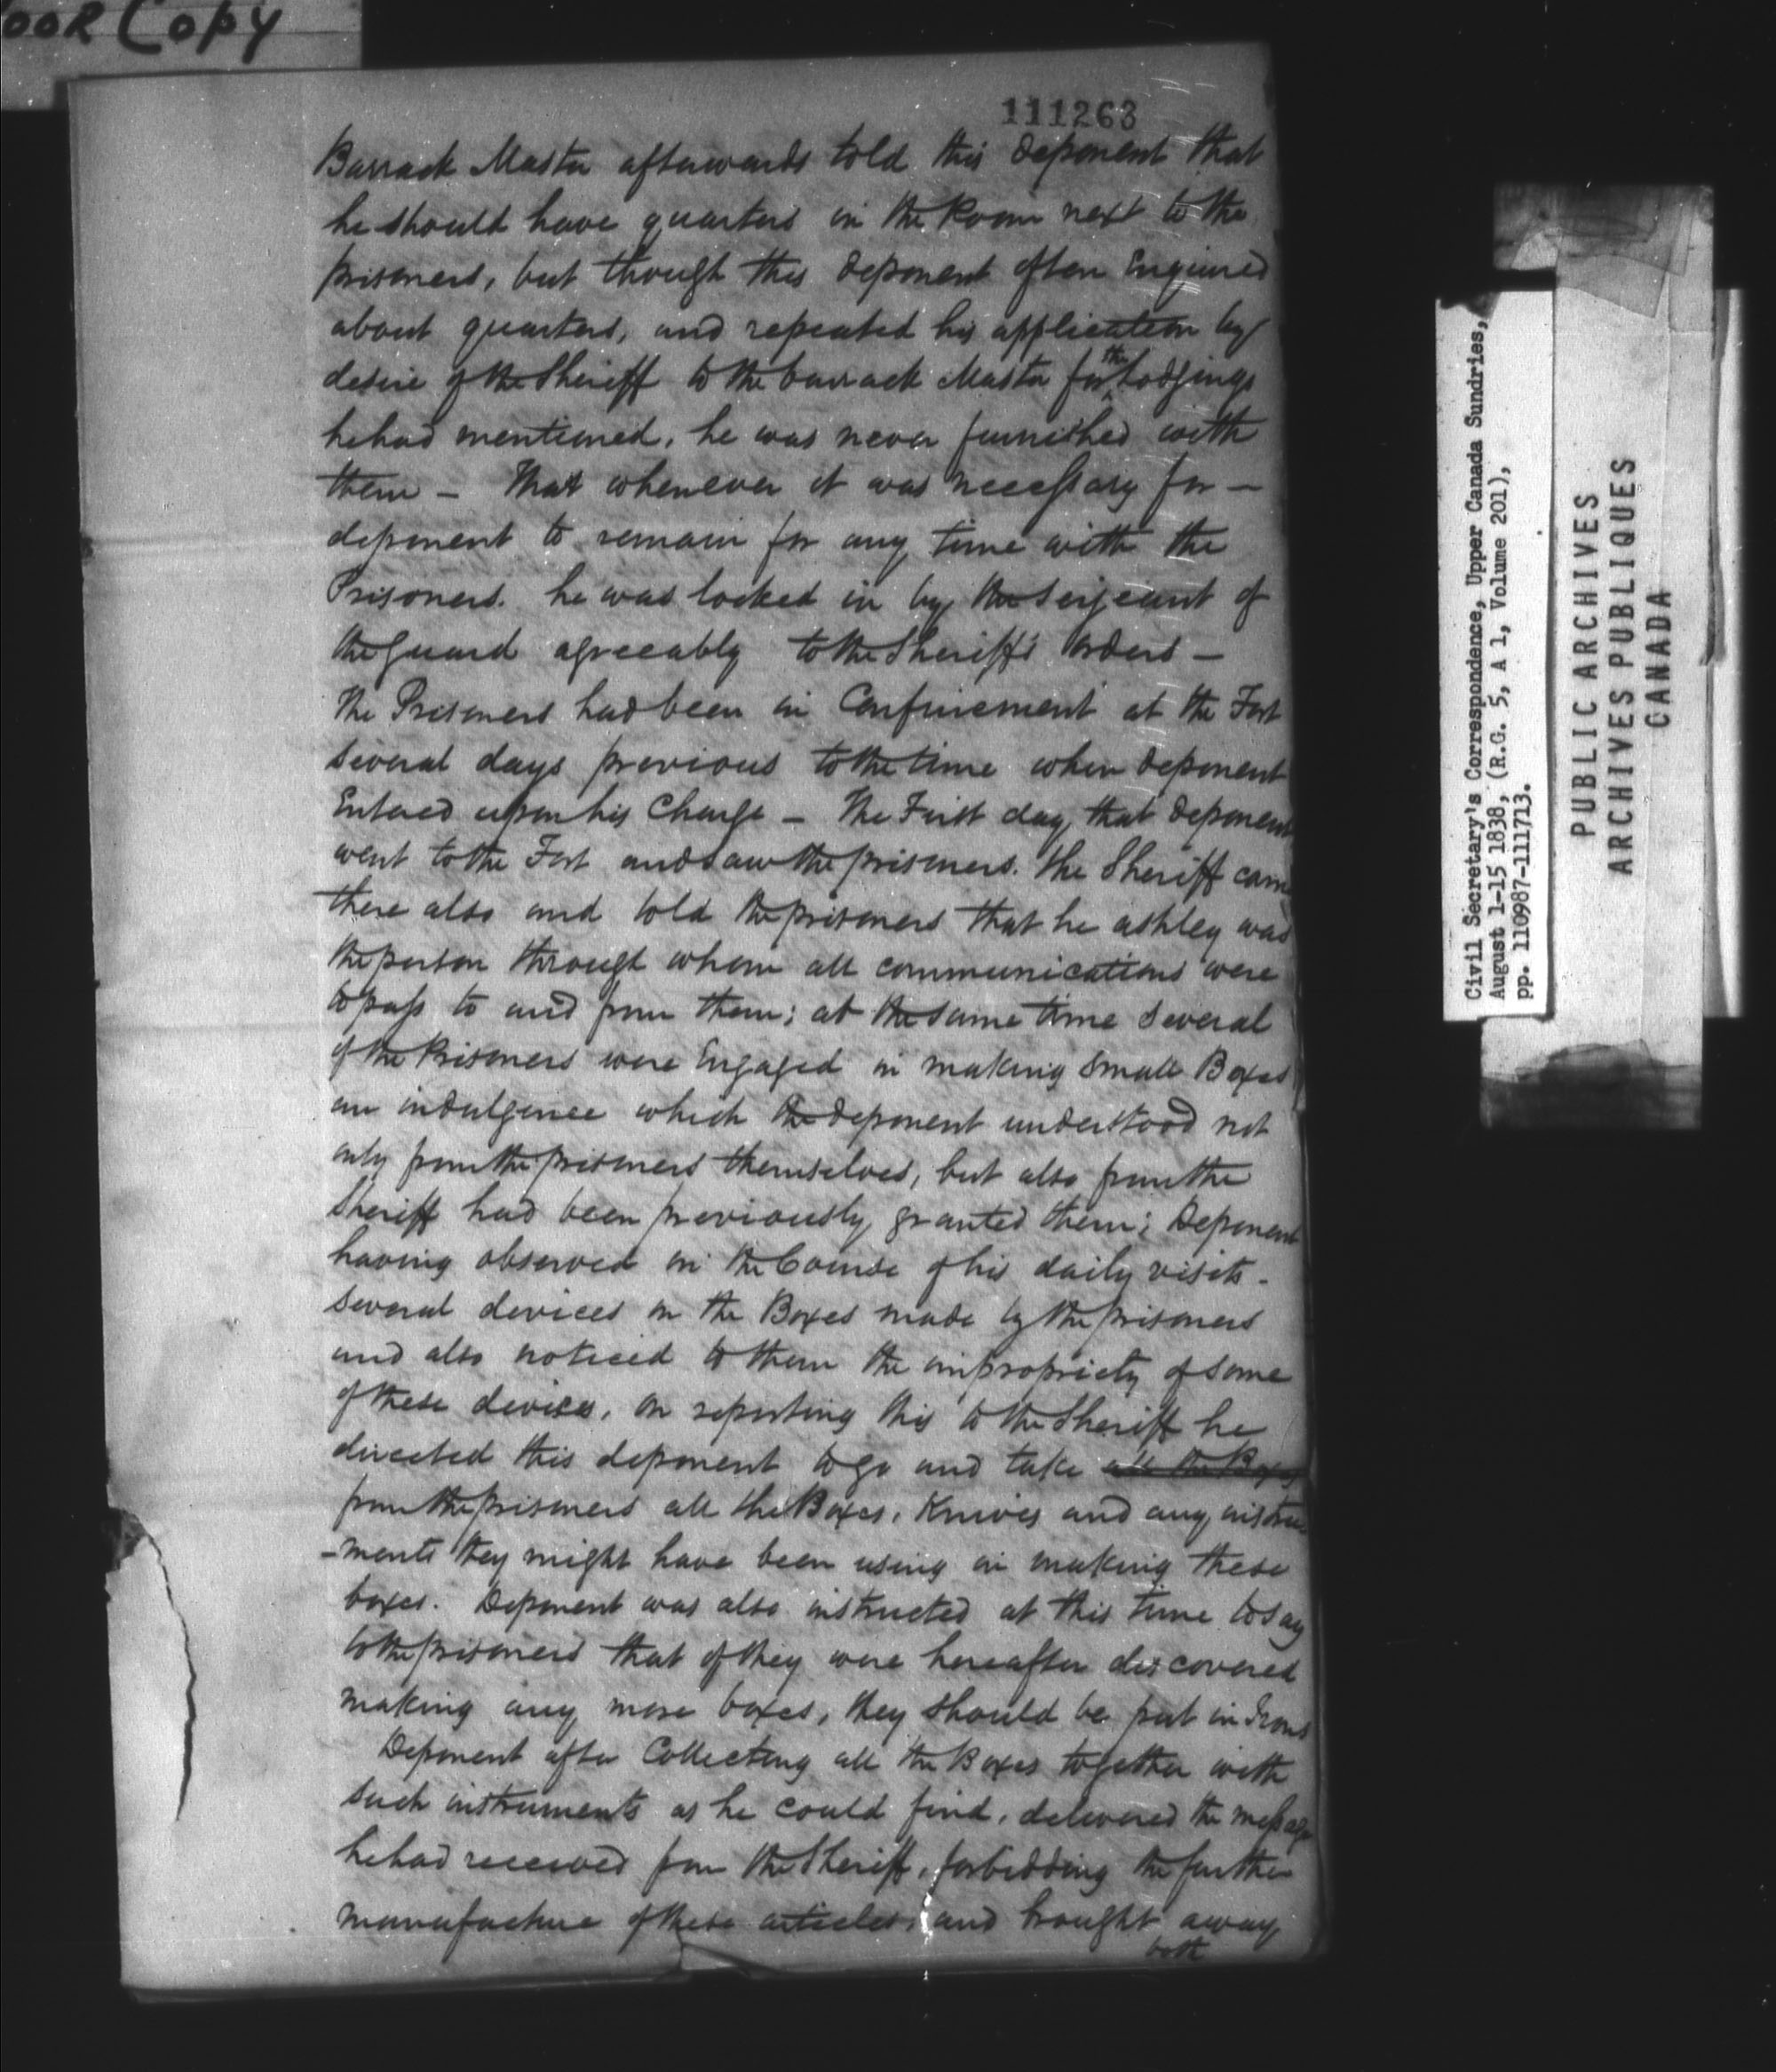 OOR Copy
111263
Barrack Master afterwards told this deponent that
he should have quarters in the Room next to the
prisoners, but though this deponent often Enquired
about quarters, and repeated his application by
desire of the Sheriff to the barrack Master for the Lodgings
he had mentioned, he was never furnished with
them - That whenever it was necessary for -
deponent to remain for any time with the
Prisoners. he was locked in by the Serjeant of
the Guard agreeably to the Sheriff's Orders -
The Prisoners had been in Confinement at the Fort
several days previous to the time when deponent
Entered upon his Charge - The First day that Deponent
went to the Fort and saw the prisoners. the Sheriff came
there also and told the prisoners that he Ashley was
the person through whom all communications were
to pass to and from them; at the same time several
of the Prisoners were Engaged in making small Boxes
an indulgence which the deponent understood not
only from the prisoners themselves, but also from the
Sheriff had been previously granted them; Deponent
having observed in the Course of his daily visits -
several devices on the Boxes made by the prisoners
and also noticed to them the impropriety of some
of these devices, on reporting this to the Sheriff he
directed this deponent to go and take all the Boxes
from the prisoners all the Boxes, Knives and any instru
-ments they might have been using in making these
boxes. Deponent was also instructed at this time to say
to the prisoners that if they were hereafter discovered
making any more boxes, they should be put in Irons
Deponent after Collecting all the Boxes together with
such instruments as he could find, delivered the message
he had received from the Sheriff, forbidding the further
manufacture of these articles, and brought away
both
Civil Secretary's Correspondence, Upper Canada Sundries,
August 1-15 1838, (R.G. 5, A 1, Volume 201),
pp. 110987-111713.
PUBLIC ARCHIVES
ARCHIVES PUBLIQUES
CANADA